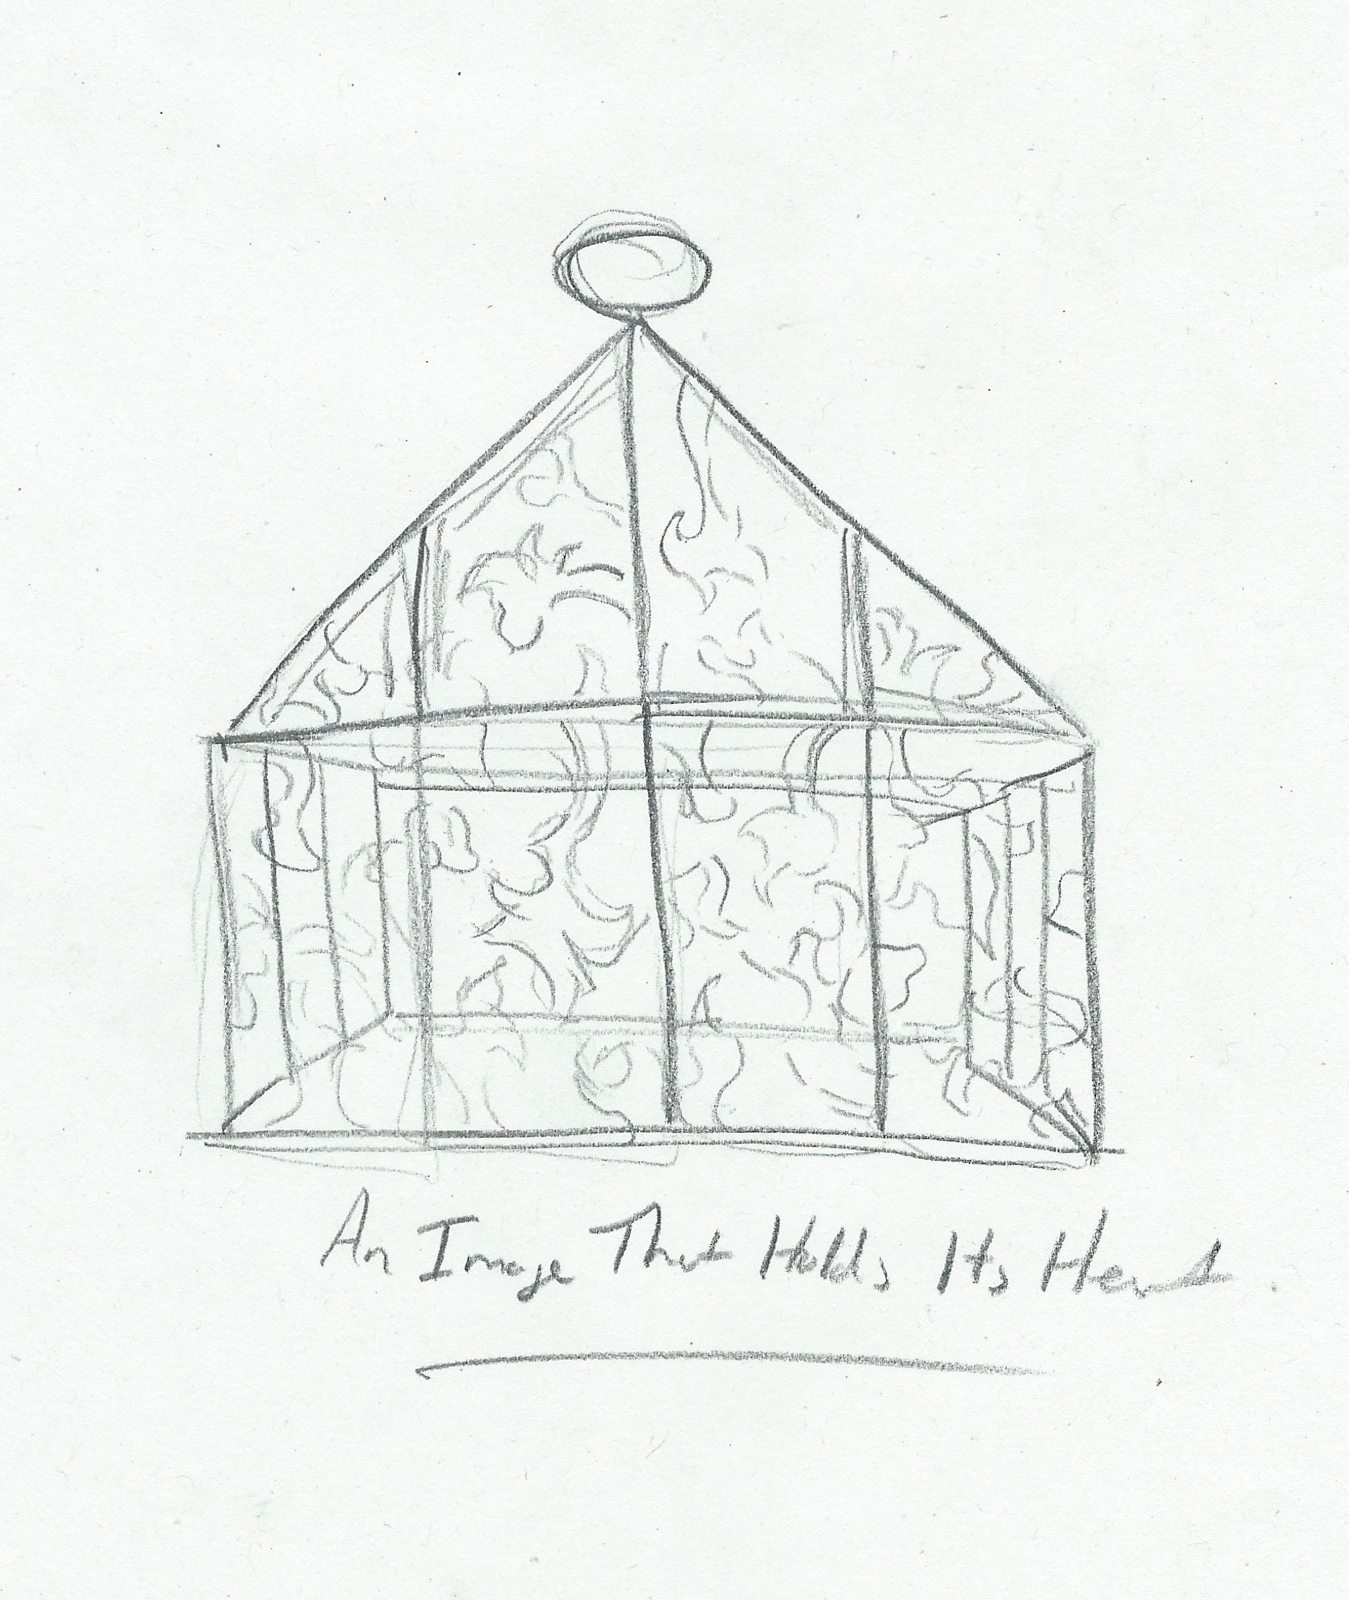 An Image That Holds Its